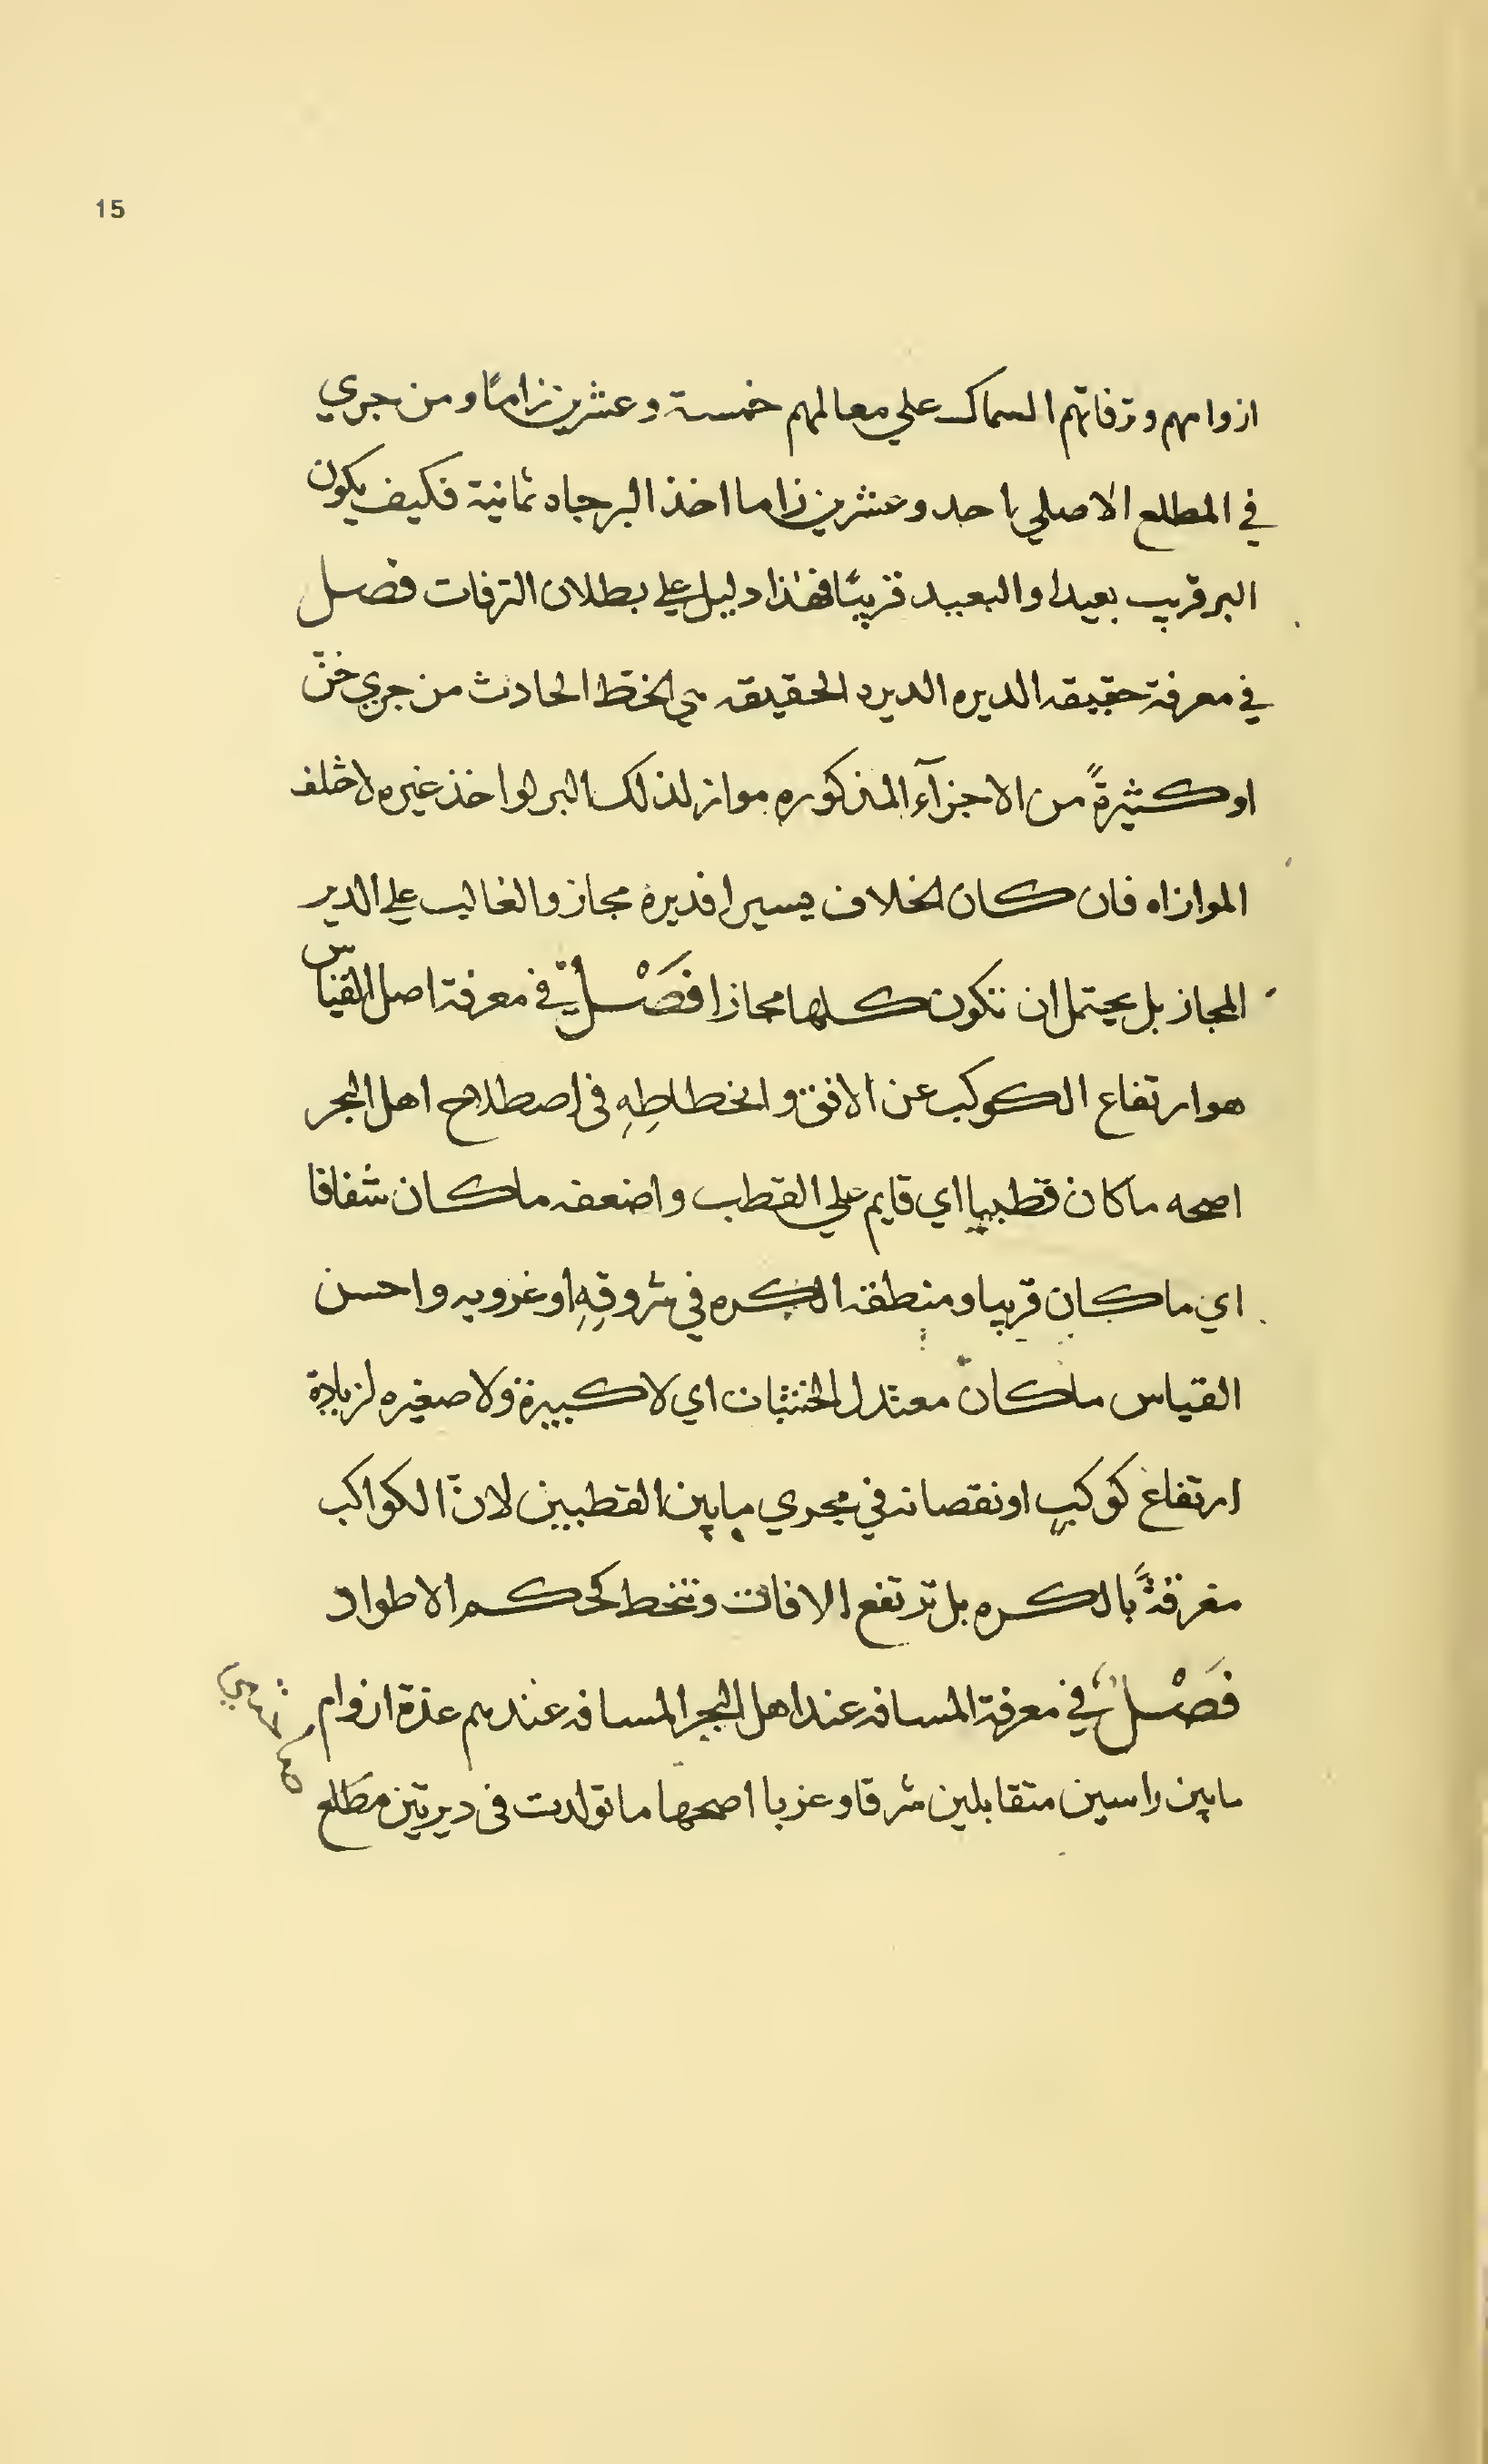 15
ازوامهم وترفاتهم السماك علي معالمهم خمسة وعشرين زاماً ومن جري
في المطلع الاصلي باحد وعشرين زاما اخذ البر جاه ثمانية فكيف يكون
البر قريب بعيدا والبعيد قريبًا فهذا دليل علي بطلان الترفات فصل
في معرفة حقيقه الديره الديره الحقيقه هي الخط الحادث من جري خنّ
او كثيرةً من الاجزآء المذكوره مواز لذلك البر لواخذ غيره لاختلف
الموازاه فان كان الخلاف يسيرا فديرة مجاز والغالب علي الدير
المجاز بل يحتمل ان تكون كلها مجازا فَصْلٌ في معرفة اصل القياس
هو ارتفاع الكوكب عن الافق وانخطاطِهِ في اصطلاح اهل البحر
اصحه ماكان قطبيا اي قايم علي القطب واضعفه ماكان شفاقا
اي ماكان قريبا ومنطقة الكره في شروقِهِ او غروبه واحسن
القياس ماكان معتدل الخشبات اي لا كبيرة ولا صغيره لزيادة
ارتفاع كوكبٍ او نقصانه في مجري مابين القطبين لانّ الكواكب
مغرقةً بالكره بل ترتفع الافاق وتنخط كحكم الاطواد
فَصْلٌ في معرفة المسافه عند اهل البحر المسافه عندهم عدة ازوام
مابين راسين متقابلين شرقا وغربا اصحها ماتولدت في ديرتين مَطلع